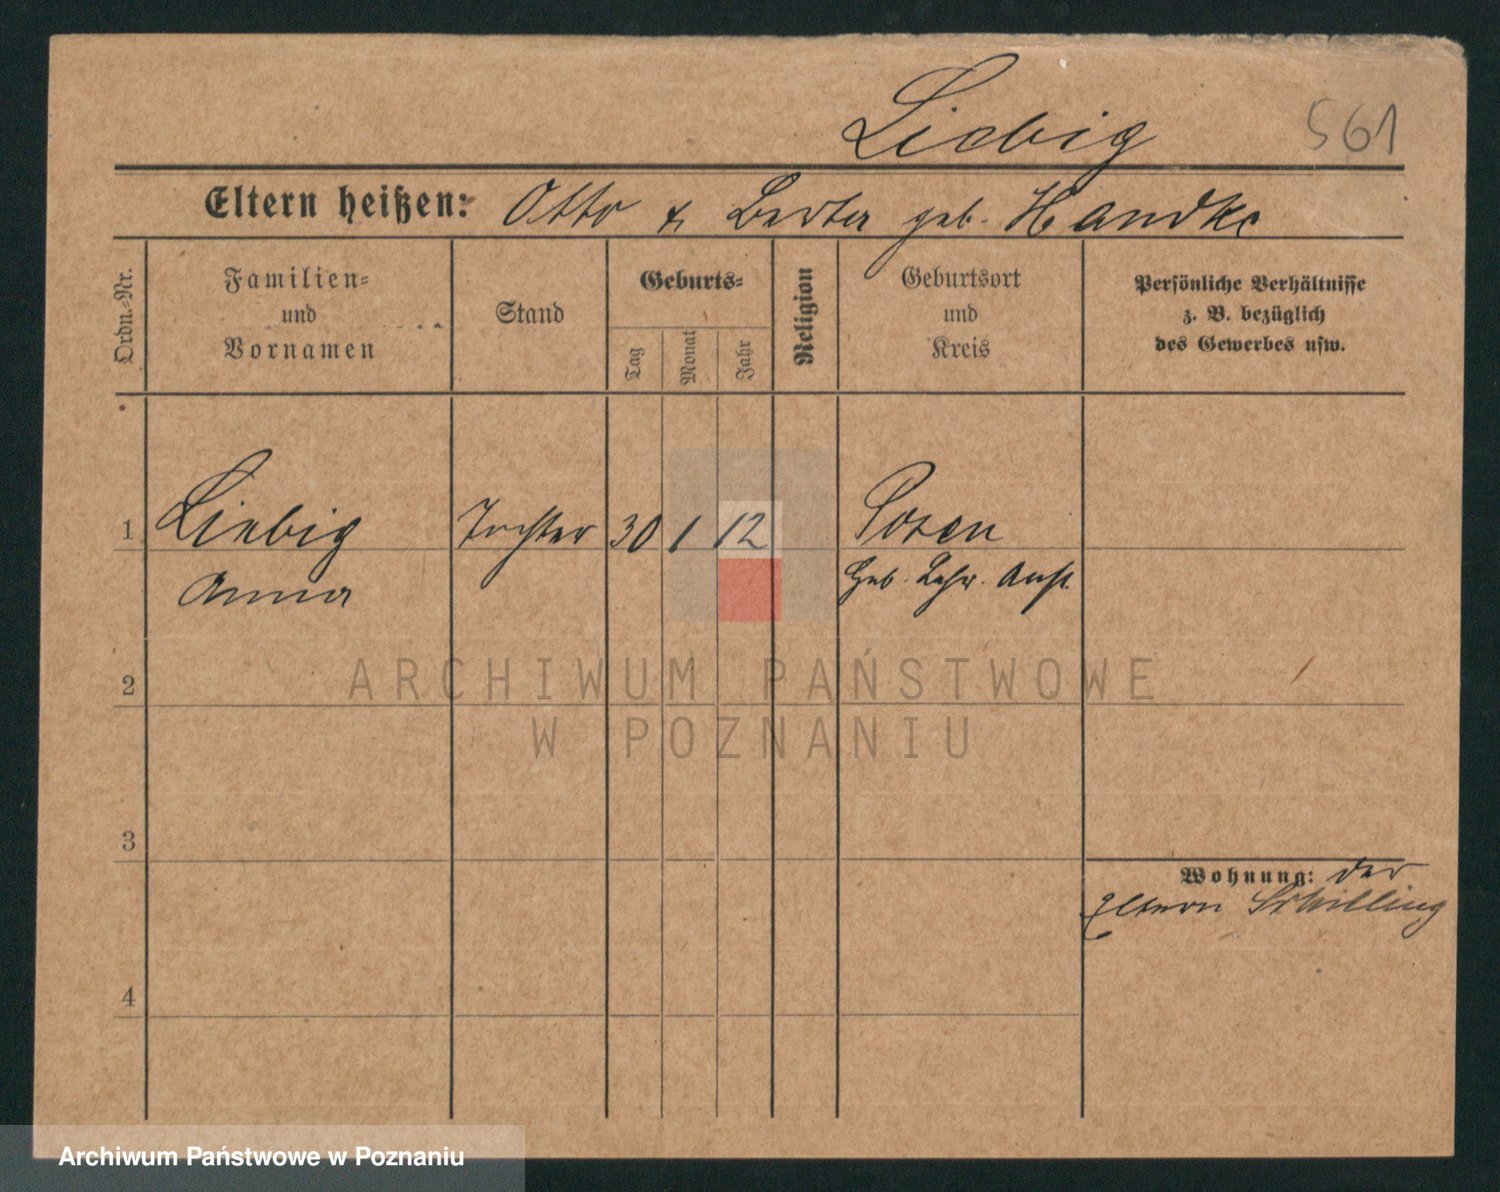 Liebig 561
Eltern heißen: Otto & Berta geb. Handke
Ordn.-Nr.
Familien-
und
Vornamen
Stand
Geburts-
Tag
Monat
Jahr
Religion
Geburtsort
und
Kreis
Persönliche Verhältnisse
z. B. bezüglich
des Gewerbes usw.
1 Liebig Tochter 30 1 12 Posen
Anna Heb. Lehr. Anst.
ARCHIWUM PAŃSTWOWE
2
W POZNANIU
3
Wohnung: der
Eltern Schilling
4
Archiwum Państwowe w Poznaniu